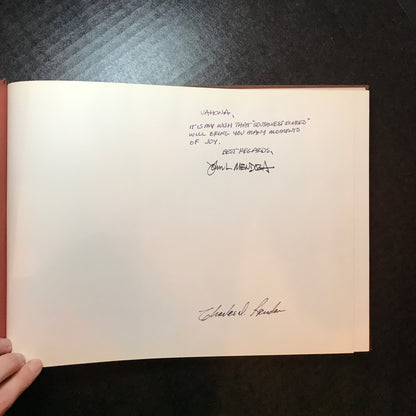 VAHONA,
IT IS MY WISH THAT "SOUTHWEST ECHOED"
WILL BRING YOU MANY MOMENTS
OF JOY.
BEST REGARDS,
JOHN L MENDOZA
Charles D.